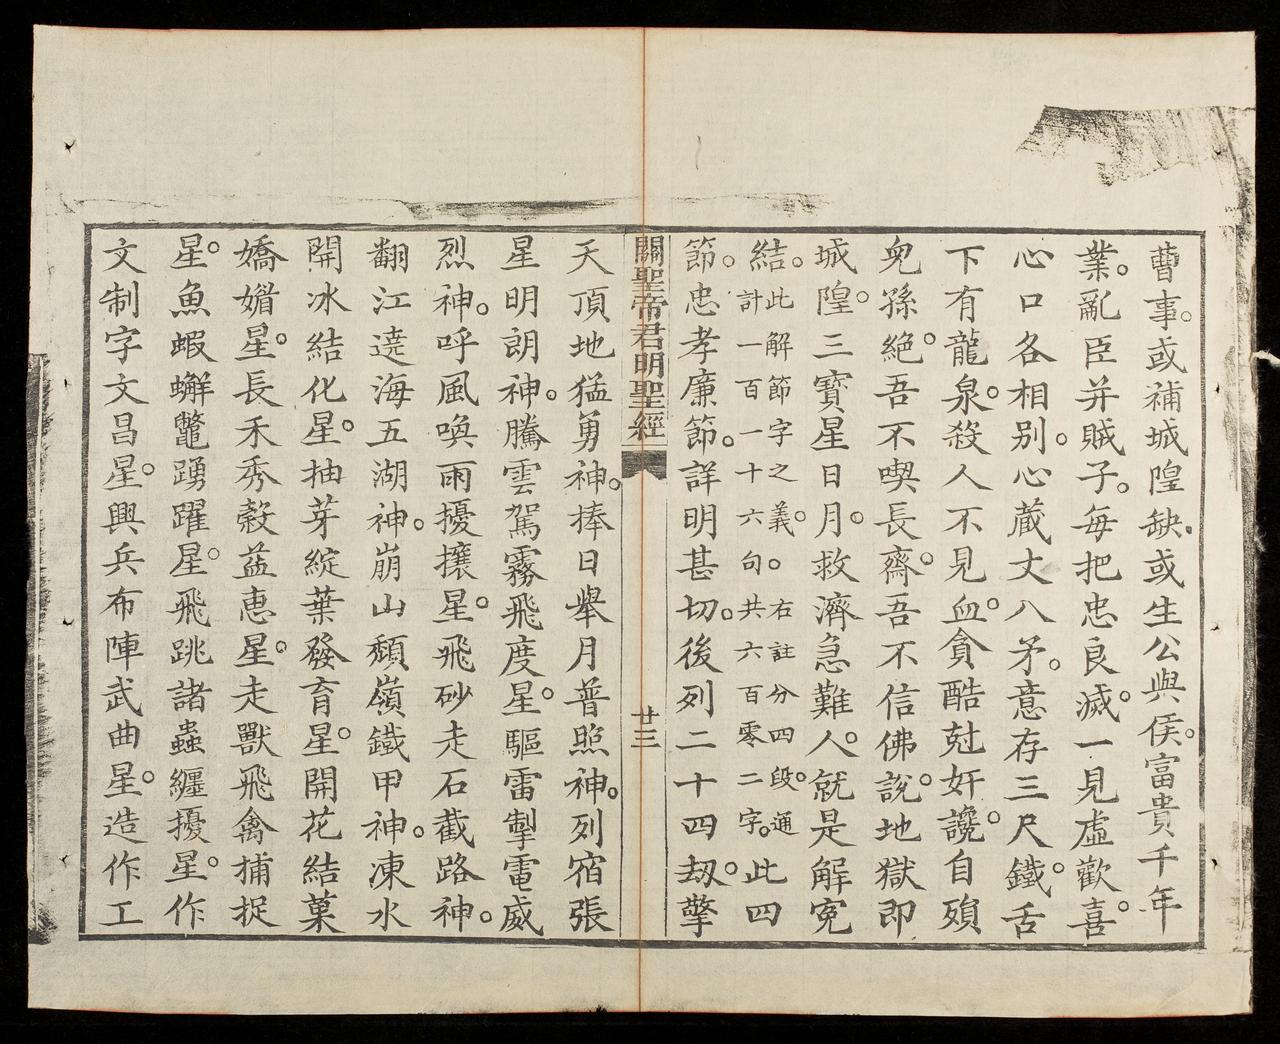 曹事。或補城隍缺。或生公與侯。富貴千年
業。亂臣并賊子。每把忠良滅。一見虛歡喜。
心口各相別。心蔵丈八矛。意存三尺鐵。舌
下有龍泉。殺人不見血。貪酷尅奸讒。自殞
兒孫絕。吾不喫長齋。吾不信佛說。地獄即
城隍。三寶星日月。救濟急難人。就是解冤
結。此解節字之義。右註分四段。通
計一百一十六句。共六百零二字。此四
節。忠孝廉節。詳明甚切。後列二十四刼。擎
關聖帝君明聖經
廿三
天頂地猛勇神。捧日舉月普照神。列宿張
星明朗神。騰雲駕霧飛度星。驅雷掣電威
烈神。呼風喚雨擾攘星。飛砂走石截路神。
翻江遶海五湖神。崩山頹嶺鐵甲神。凍水
開冰結化星。抽芽綻葉發育星。開花結菓
嬌媚星。長禾秀穀益惠星。走獸飛禽捕捉
星。魚蝦蠏鼈踴躍星。飛跳諸蟲纏擾星。作
文制字文昌星。興兵布陣武曲星。造作工